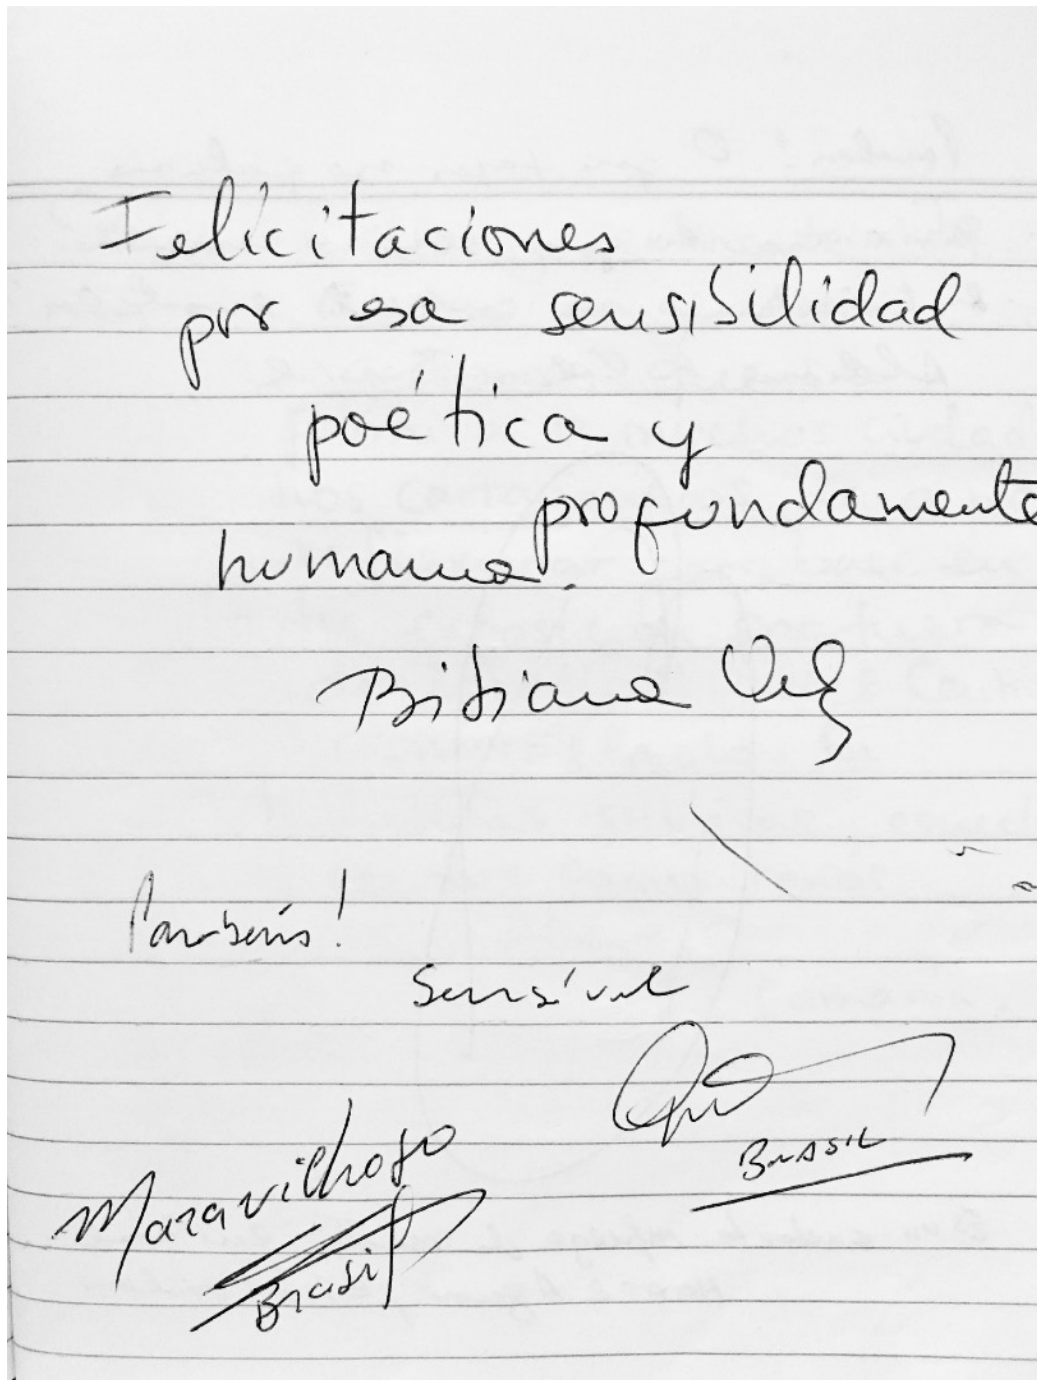 Felicitaciones
por esa sensibilidad
poética y
profundamente
humana.
Bibiana
Parabéns!
Sensível
BRASIL
Maravilhoso
Brasil